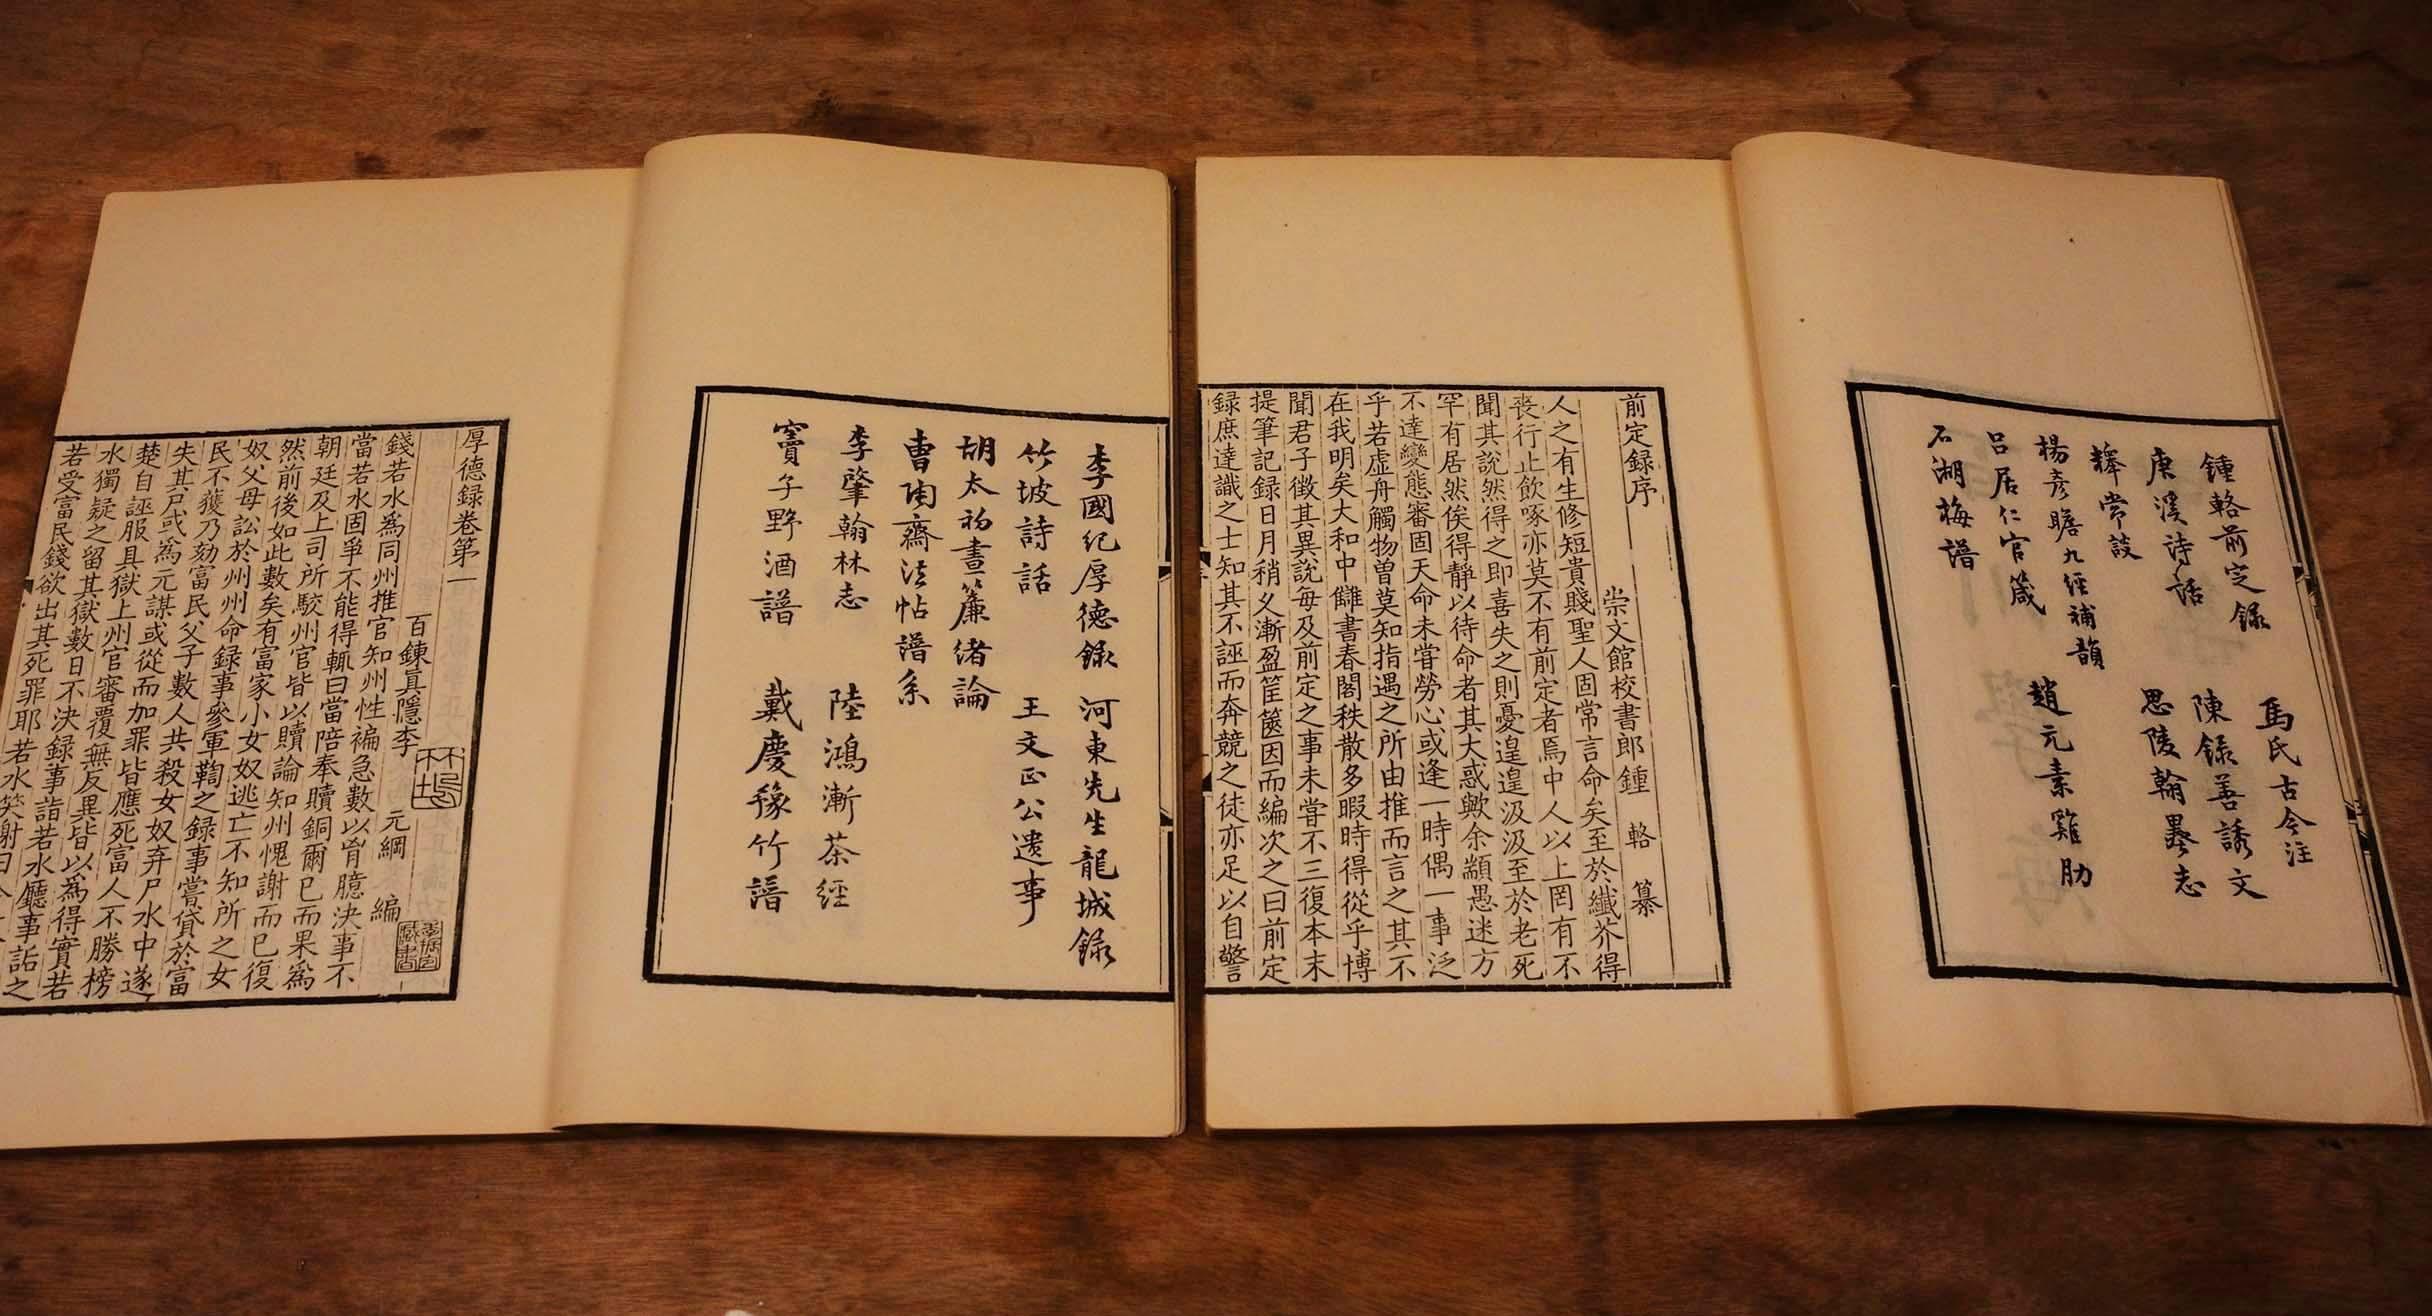 鍾輅前定録 馬氏古今注
庚溪詩話 陳錄善誘文
釋常談 思陵翰墨志
楊彥瞻九經補韻
呂居仁官箴 趙元素雞肋
石湖梅譜
前定録序
崇文館校書郎鍾 輅 纂
人之有生修短貴賤聖人固常言命矣至於纖芥得
喪行止飲啄亦莫不有前定者焉中人以上罔有不
聞其說然得之即喜失之則憂遑遑汲汲至於老死
罕有居然俟得靜以待命者其大惑歟余顓愚迷方
不達變態審固天命未嘗勞心或逢一時偶一事泛
乎若虛舟觸物曾莫知指遇之所由推而言之其不
在我明矣大和中讎書春閣秩散多暇時得從乎博
聞君子徵其異說每及前定之事未嘗不三復本末
提筆記録日月稍久漸盈筐篋因而編次之曰前定
録庶達識之士知其不誣而奔競之徒亦足以自警
李國紀厚德錄 河東先生龍城錄
竹坡詩話 王文正公遺事
胡太初晝簾緒論
曹陶齋法帖譜系
李肇翰林志 陸鴻漸茶經
竇子野酒譜 戴慶豫竹譜
厚德録卷第一
百鍊真隱李 元綱 編
錢若水爲同州推官知州性褊急數以胷臆決事不
當若水固爭不能得輒曰當陪奉贖銅爾已而果爲
朝廷及上司所駮州官皆以贖論知州愧謝而已復
然前後如此數矣有富家小女奴逃亡不知所之女
奴父母訟於州州命録事參軍鞫之録事嘗貸於富
民不獲乃劾富民父子數人共殺女奴弃尸水中遂
失其尸或爲元謀或從而加罪皆應死富人不勝榜
楚自誣服具獄上州官審覆無反異皆以爲得實若
水獨疑之留其獄數日不決録事詣若水廳事詬之
若受富民錢欲出其死罪耶若水笑謝曰